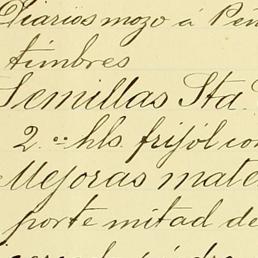 Diarios mozo á Peñ
timbres
Semillas Sta.
2.<sup>oo</sup> hls. frijól con
Mejoras mate
porte mitad de